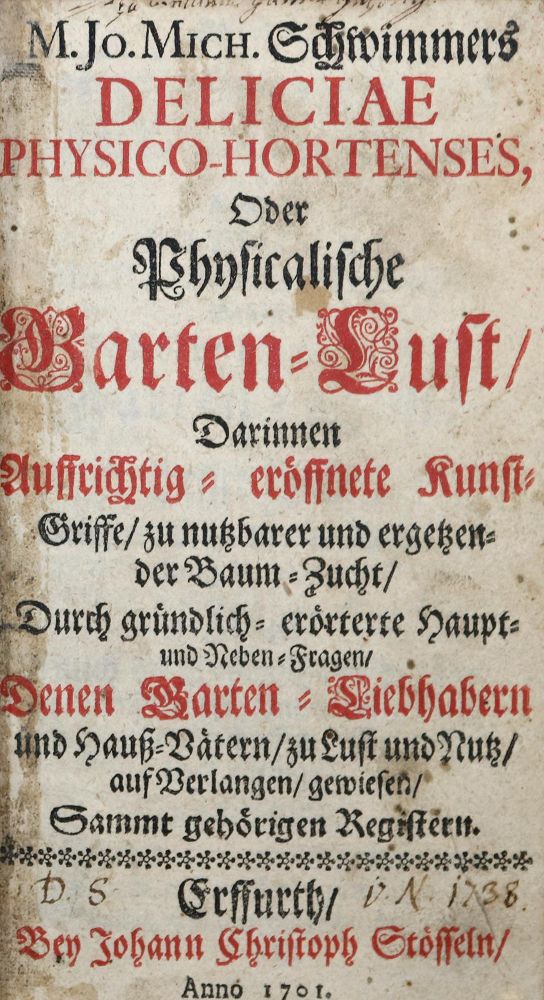 M. JO. MICH. Schwimmers
DELICIAE
PHYSICO-HORTENSES,
Oder
Physicalische
Garten-Lust/
Darinnen
Auffrichtig-eröffnete Kunst-
Griffe/ zu nutzbarer und ergetzen-
der Baum-Zucht/
Durch gründlich-erörterte Haupt-
und Neben-Fragen/
Denen Garten-Liebhabern
und Hauß-Vätern/ zu Lust und Nutz/
auf Verlangen/ gewiesen/
Sammt gehörigen Registern.
D. S. Erffurth/ V. N. 1738.
Bey Johann Christoph Stösseln/
Anno 1701.